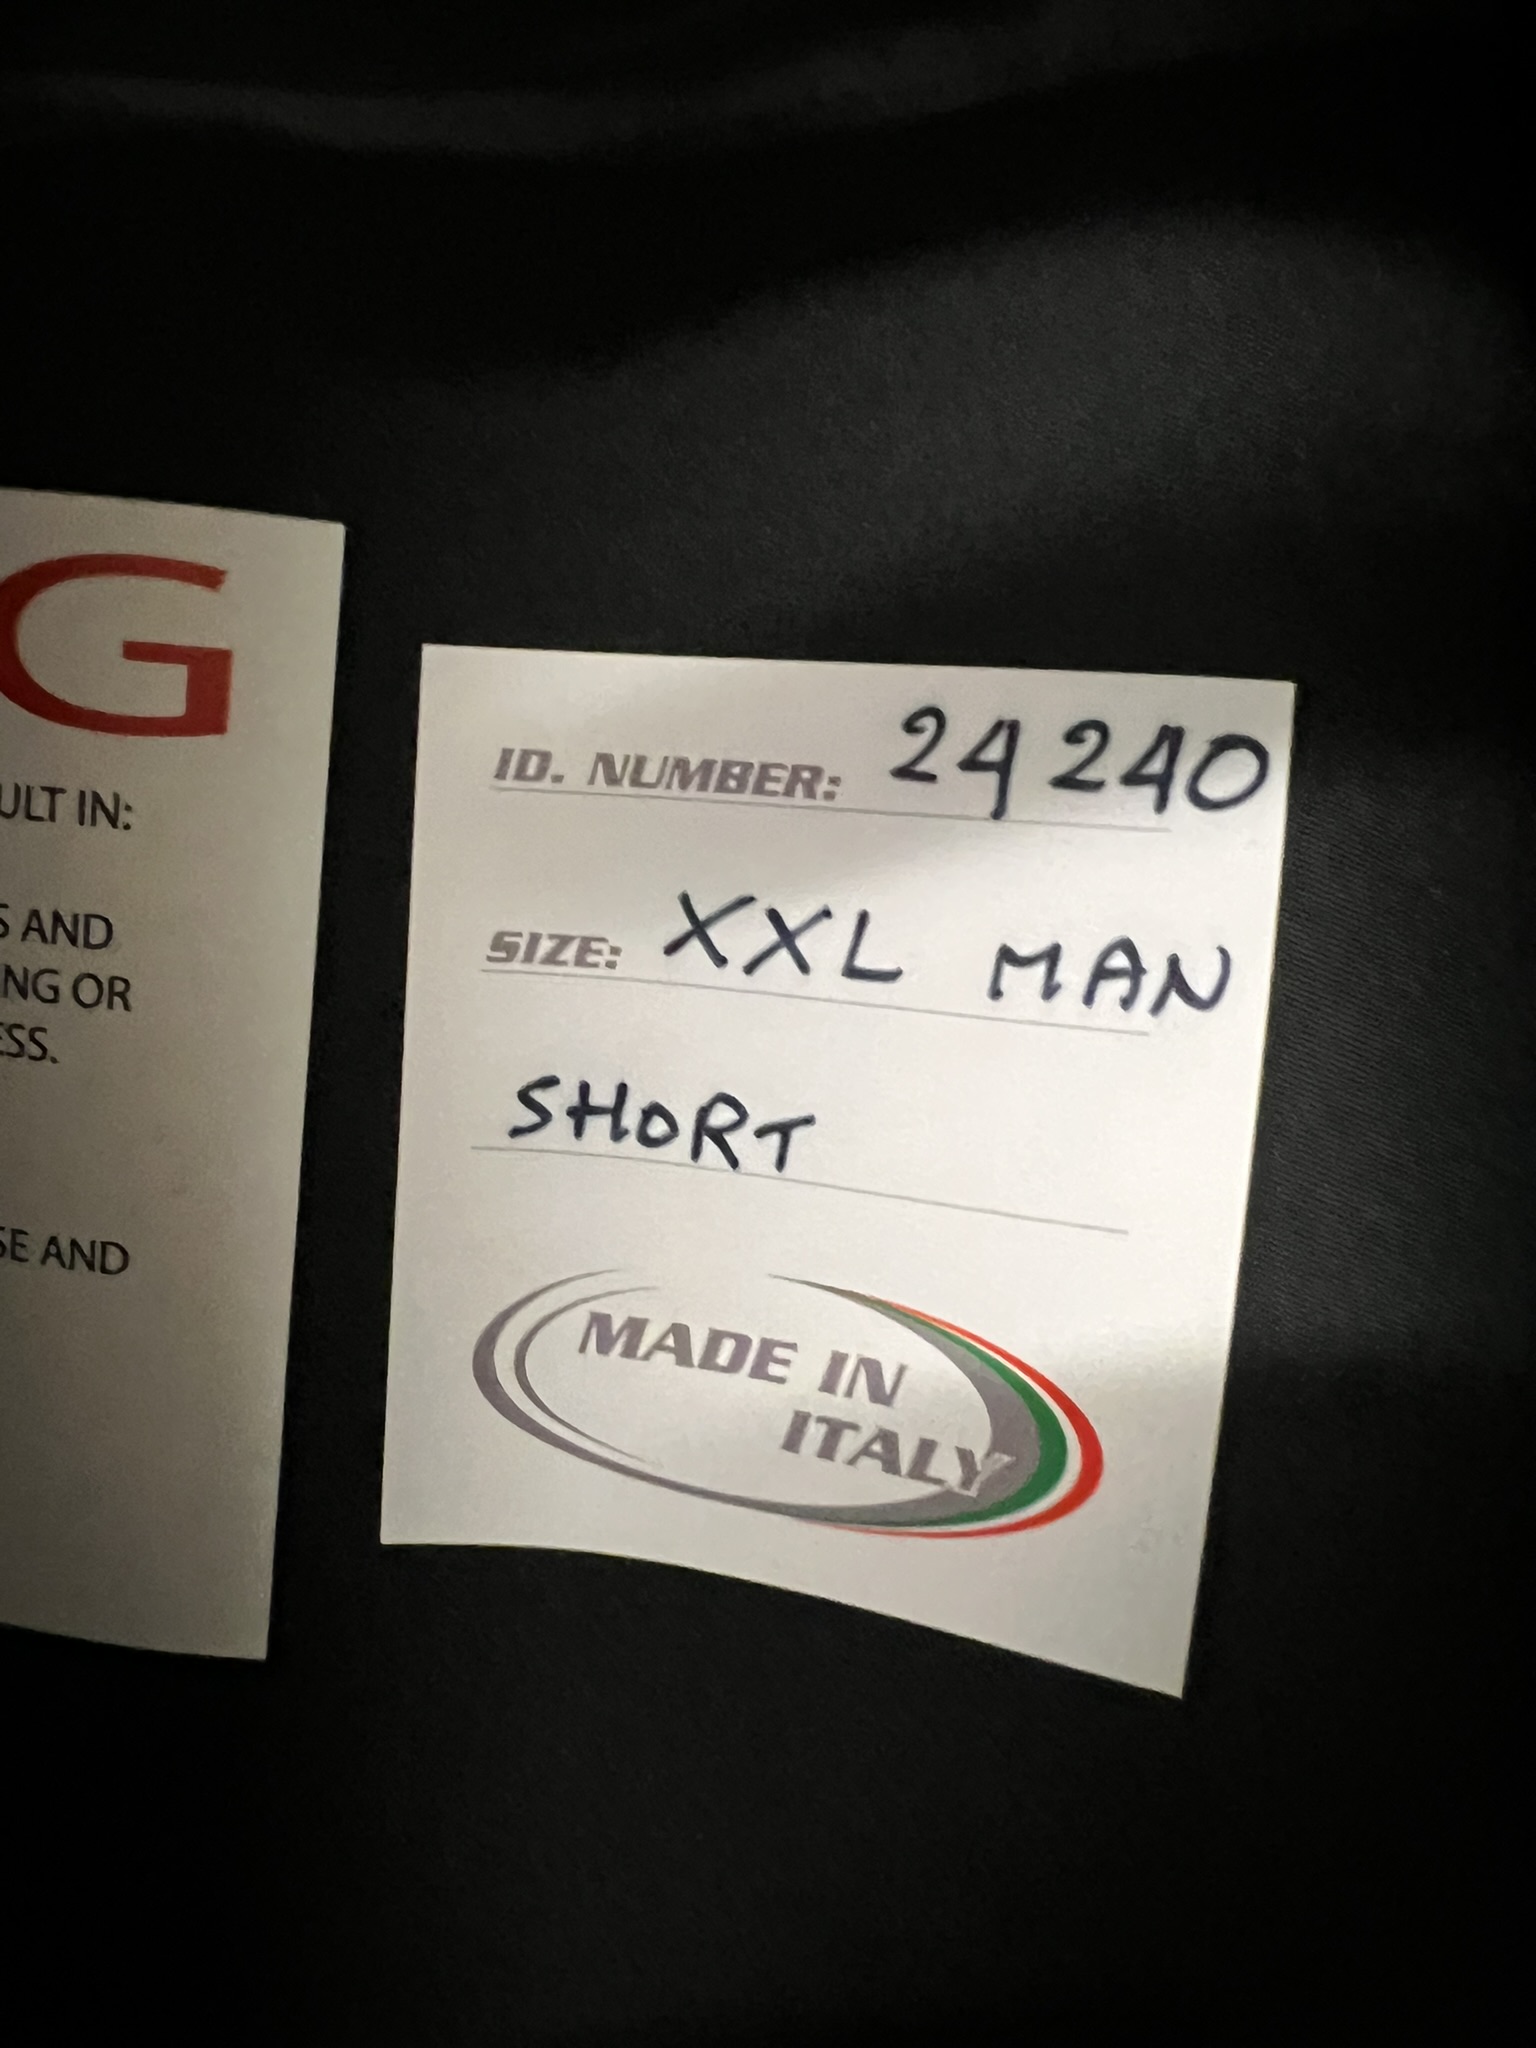 G
ULT IN:
S AND
NG OR
ESS.
SE AND
ID. NUMBER: 24240
SIZE: XXL MAN
SHORT
MADE IN
ITALY